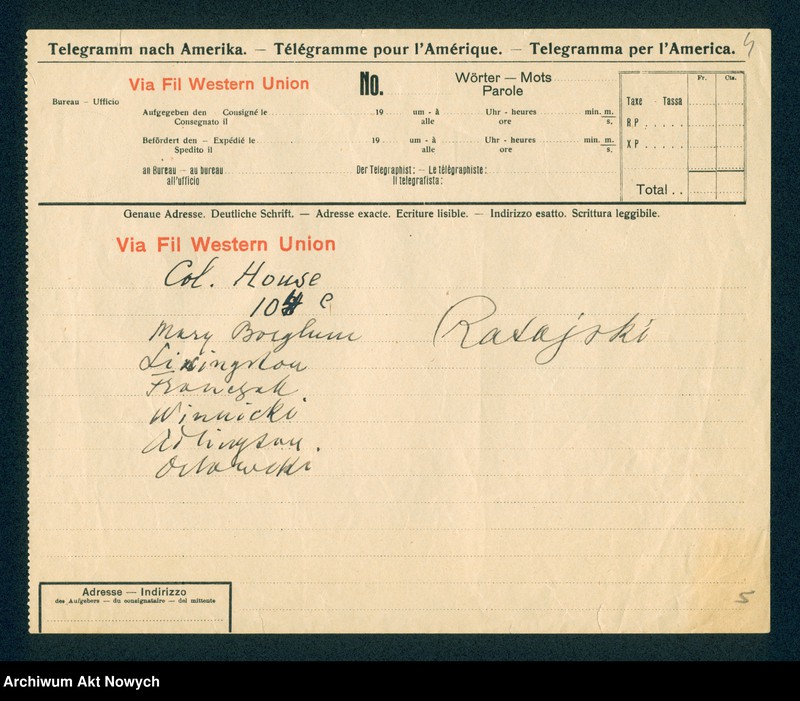 4
Telegramm nach Amerika. — Télégramme pour l'Amérique. — Telegramma per l'America.
Via Fil Western Union No. Wörter — Mots
Parole
Bureau - Ufficio
Aufgegeben den Consigné le 19 um - à Uhr - heures min. m.
Consegnato il alle ore s.
Befördert den — Expédié le 19 um - à Uhr - heures min. m.
Spedito il alle ore s.
an Bureau — au bureau Der Telegraphist: — Le télégraphiste:
all'ufficio Il telegrafista:
Fr. Cts.
Taxe - Tassa
R P
X P
Total
Genaue Adresse. Deutliche Schrift. — Adresse exacte. Ecriture lisible. — Indirizzo esatto. Scrittura leggibile.
Via Fil Western Union
Col. House
104 e
Mary Borglum
Ratajski
Livingston
Franczak
Winnicki
Adlington.
Orlowski
Adresse — Indirizzo
des Aufgebers — du consignataire — del mittente
5
Archiwum Akt Nowych